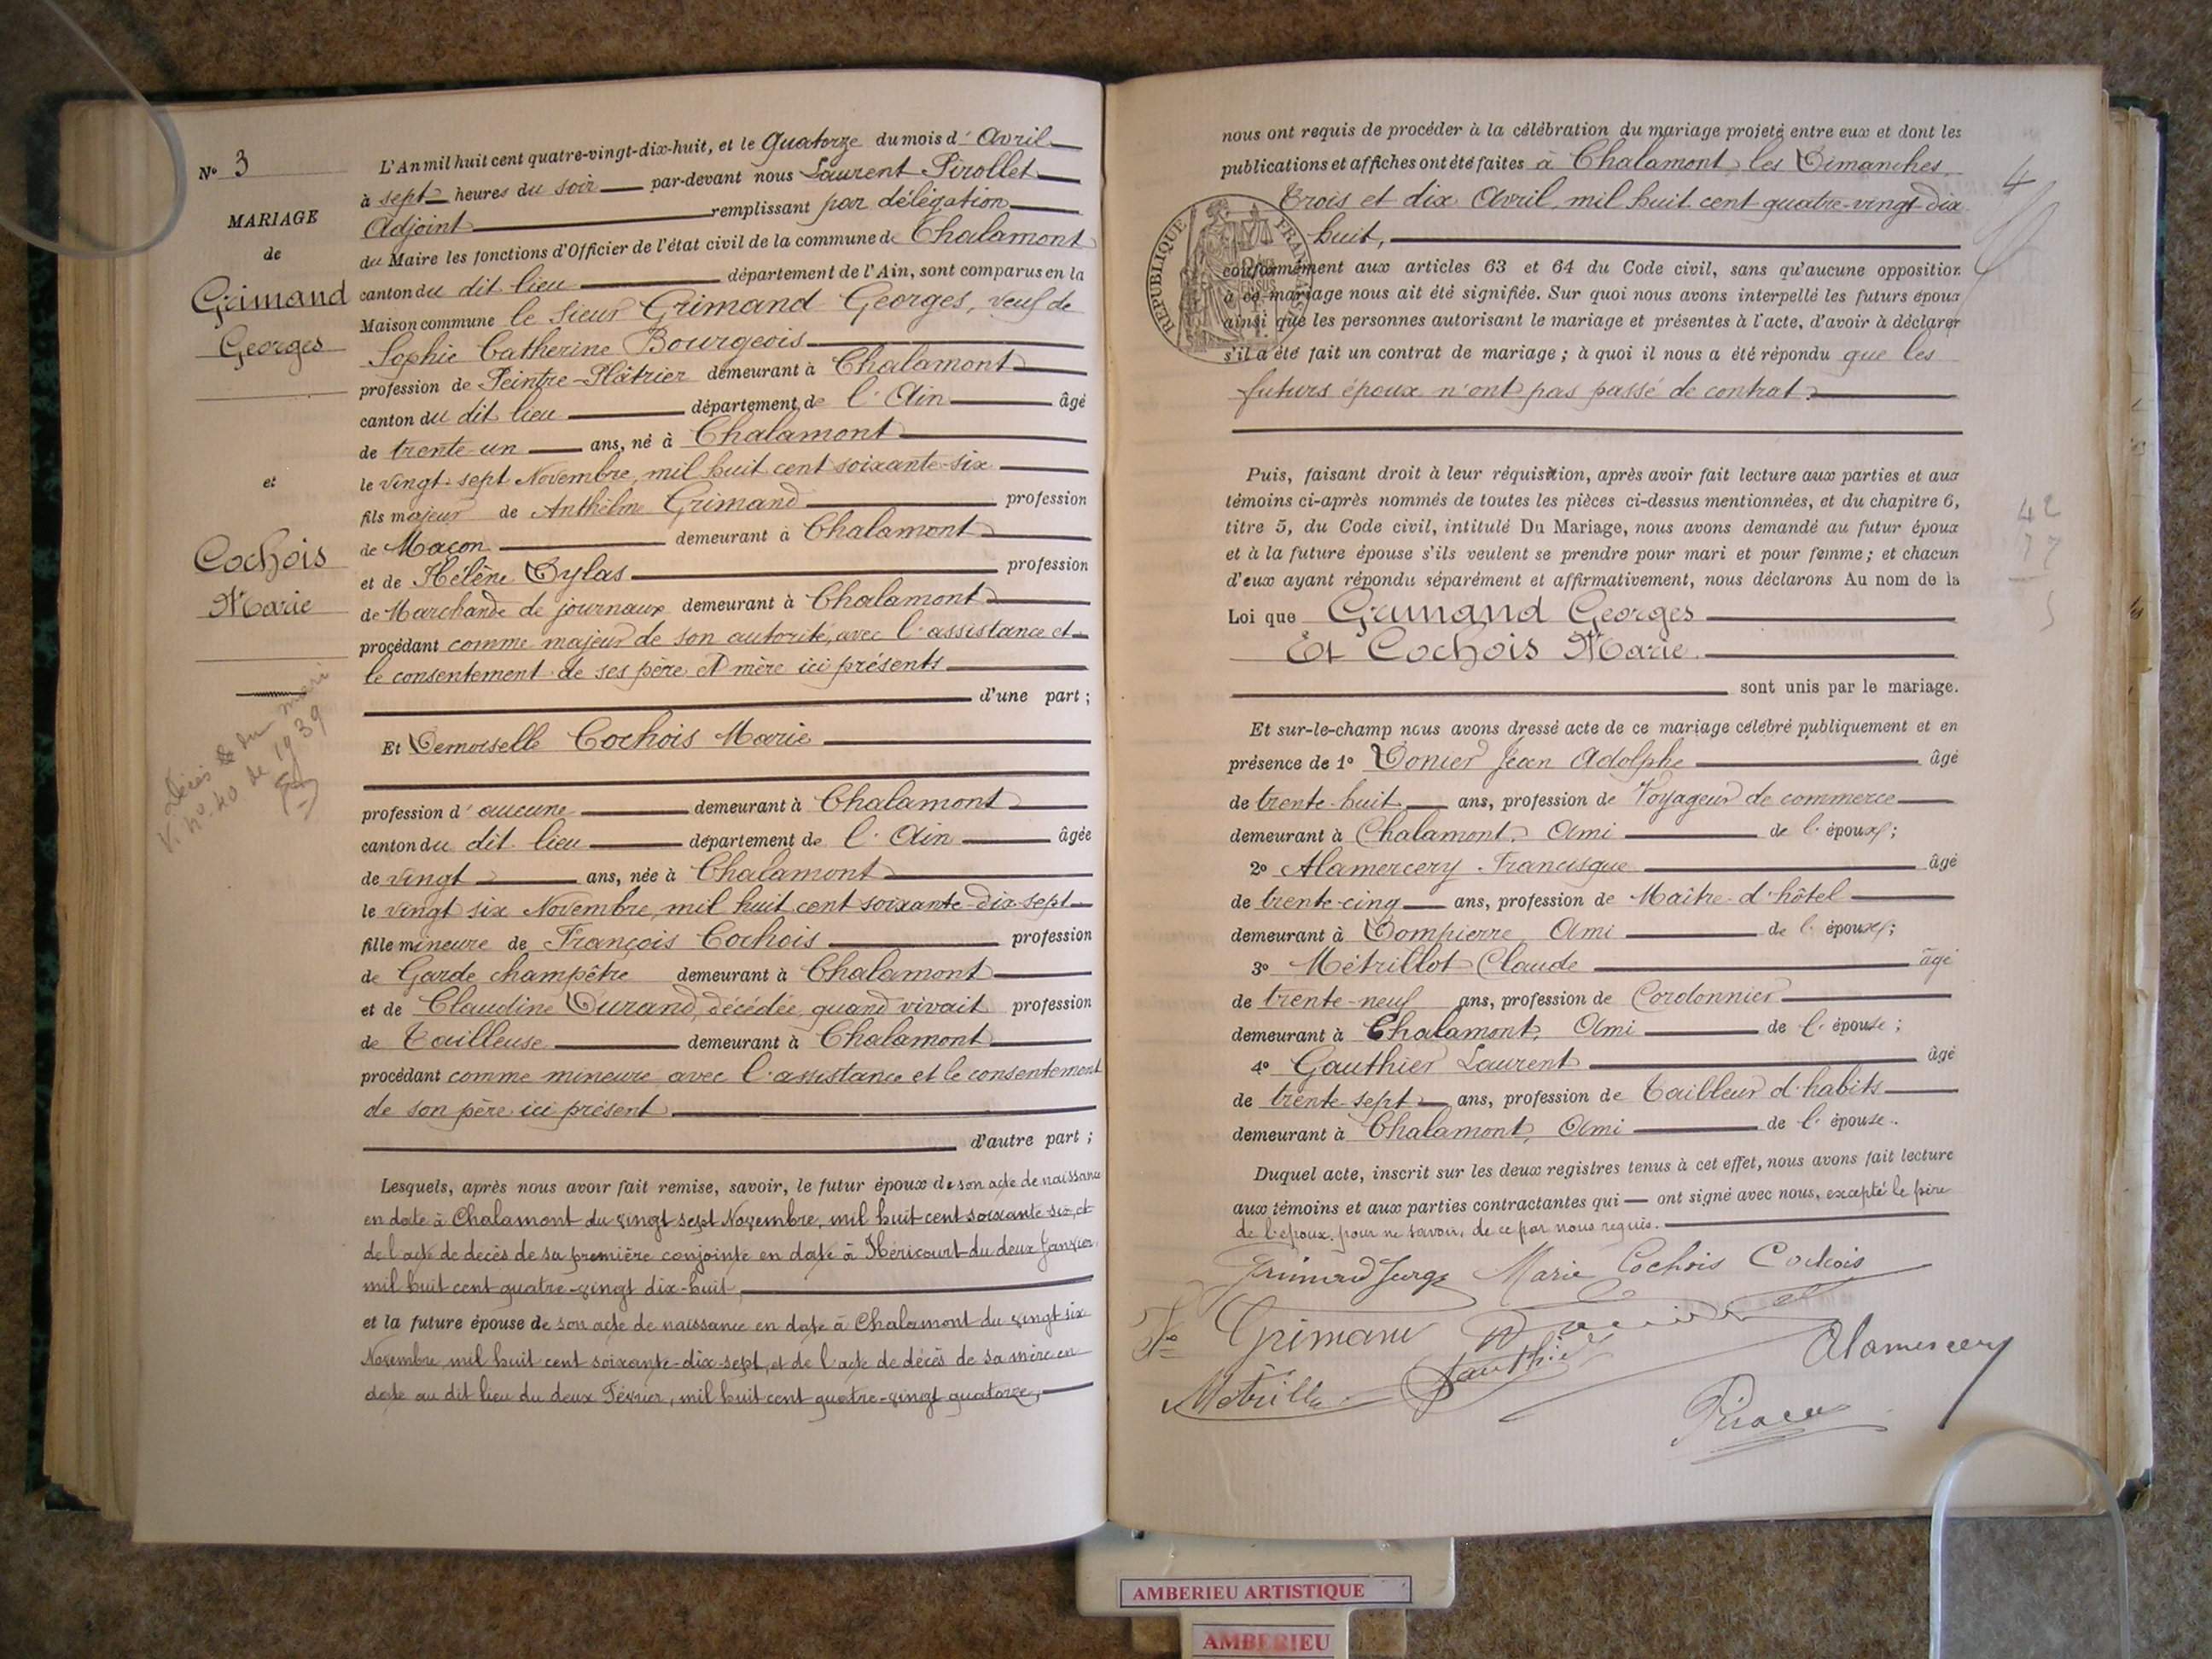 N° 3
MARIAGE
de
Grimand
Georges
et
Cochois
Marie
Décès du mari
V. n° 40 de 1939
L'An mil huit cent quatre-vingt-dix-huit, et le Quatorze du mois d' Avril
à sept heures du soir par-devant nous Laurent Pirollet
Adjoint remplissant par délégation
du Maire les fonctions d'Officier de l'état civil de la commune de Chalamont
canton du dit lieu département de l'Ain, sont comparus en la
Maison commune le sieur Grimand Georges, veuf de
Sophie Catherine Bourgeois
profession de Peintre-Plâtrier demeurant à Chalamont
canton du dit lieu département de l'Ain âgé
de trente-un ans, né à Chalamont
le vingt-sept Novembre, mil huit cent soixante-six
fils majeur de Anthelme Grimand profession
de Maçon demeurant à Chalamont
et de Hélène Dylas profession
de Marchande de journaux demeurant à Chalamont
procédant comme majeur de son autorité, avec l'assistance et
le consentement de ses père et mère ici présents
d'une part ;
Et Demoiselle Cochois Marie
profession d' aucune demeurant à Chalamont
canton du dit lieu département de l'Ain âgée
de vingt ans, née à Chalamont
le vingt six Novembre, mil huit cent soixante-dix-sept
fille mineure de François Cochois profession
de Garde champêtre demeurant à Chalamont
et de Claudine Durand, décédée, quand vivait profession
de Tailleuse demeurant à Chalamont
procédant comme mineure avec l'assistance et le consentement
de son père ici présent
d'autre part ;
Lesquels, après nous avoir fait remise, savoir, le futur époux de son acte de naissance
en date à Chalamont du vingt sept Novembre, mil huit cent soixante-six, et
de l'acte de décès de sa première conjointe en date à Héricourt du deux Janvier,
mil huit cent quatre-vingt dix-huit,
et la future épouse de son acte de naissance en date à Chalamont du vingt six
Novembre, mil huit cent soixante-dix-sept, et de l'acte de décès de sa mère en
date au dit lieu du deux Février, mil huit cent quatre-vingt quatorze,
nous ont requis de procéder à la célébration du mariage projeté entre eux et dont les
publications et affiches ont été faites à Chalamont, les Dimanches
trois et dix Avril, mil huit cent quatre-vingt dix
huit,
RÉPUBLIQUE FRANÇAISE
conformément aux articles 63 et 64 du Code civil, sans qu'aucune opposition
à ce mariage nous ait été signifiée. Sur quoi nous avons interpellé les futurs époux
ainsi que les personnes autorisant le mariage et présentes à l'acte, d'avoir à déclarer
s'il a été fait un contrat de mariage ; à quoi il nous a été répondu que les
futurs époux n'ont pas passé de contrat.
Puis, faisant droit à leur réquisition, après avoir fait lecture aux parties et aux
témoins ci-après nommés de toutes les pièces ci-dessus mentionnées, et du chapitre 6,
titre 5, du Code civil, intitulé Du Mariage, nous avons demandé au futur époux
et à la future épouse s'ils veulent se prendre pour mari et pour femme ; et chacun
d'eux ayant répondu séparément et affirmativement, nous déclarons Au nom de la
Loi que Grimand Georges
Et Cochois Marie
sont unis par le mariage.
Et sur-le-champ nous avons dressé acte de ce mariage célébré publiquement et en
présence de 1° Donier Jean Adolphe âgé
de trente-huit ans, profession de Voyageur de commerce
demeurant à Chalamont, Ami de l'époux ;
2° Alamercery Francisque âgé
de trente-cinq ans, profession de Maître d'hôtel
demeurant à Dompierre Ami de l'époux ;
3° Métrillot Claude âgé
de trente-neuf ans, profession de Cordonnier
demeurant à Chalamont, Ami de l'épouse ;
4° Gauthier Laurent âgé
de trente-sept ans, profession de Tailleur d'habits
demeurant à Chalamont, Ami de l'épouse.
Duquel acte, inscrit sur les deux registres tenus à cet effet, nous avons fait lecture
aux témoins et aux parties contractantes qui ont signé avec nous, excepté le père
de l'époux, pour ne savoir, de ce par nous requis.
Grimand Marie Cochois Cochois
Grimand
Gauthier
Alamercery
4
42
77
AMBERIEU ARTISTIQUE
AMBERIEU